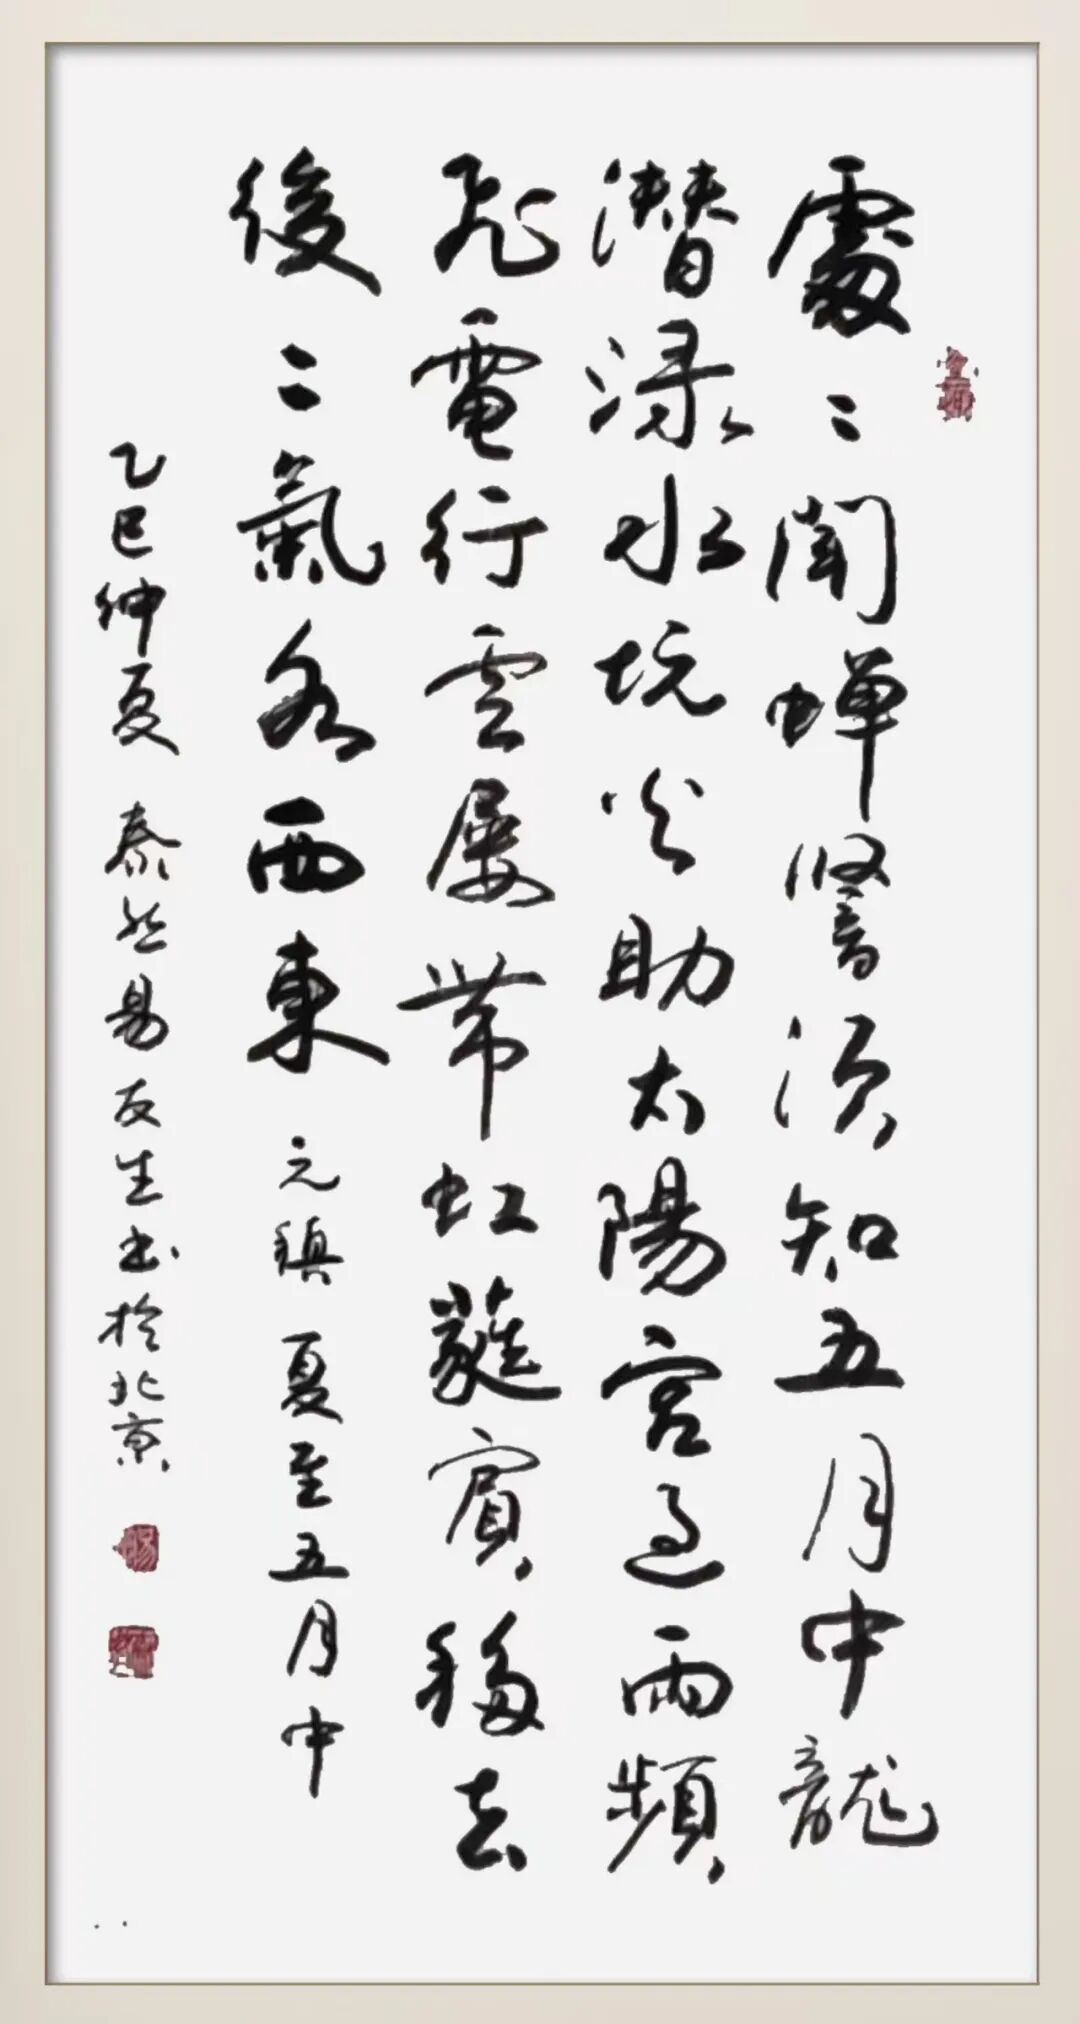 處々聞蝉響須知五月中龍
潜渌水坑火助太陽宮過雨頻
飛電行雲屢帶虹蕤賓移去
後二氣各西東 元稹 夏至五月中
乙巳仲夏 泰然易友生书於北京